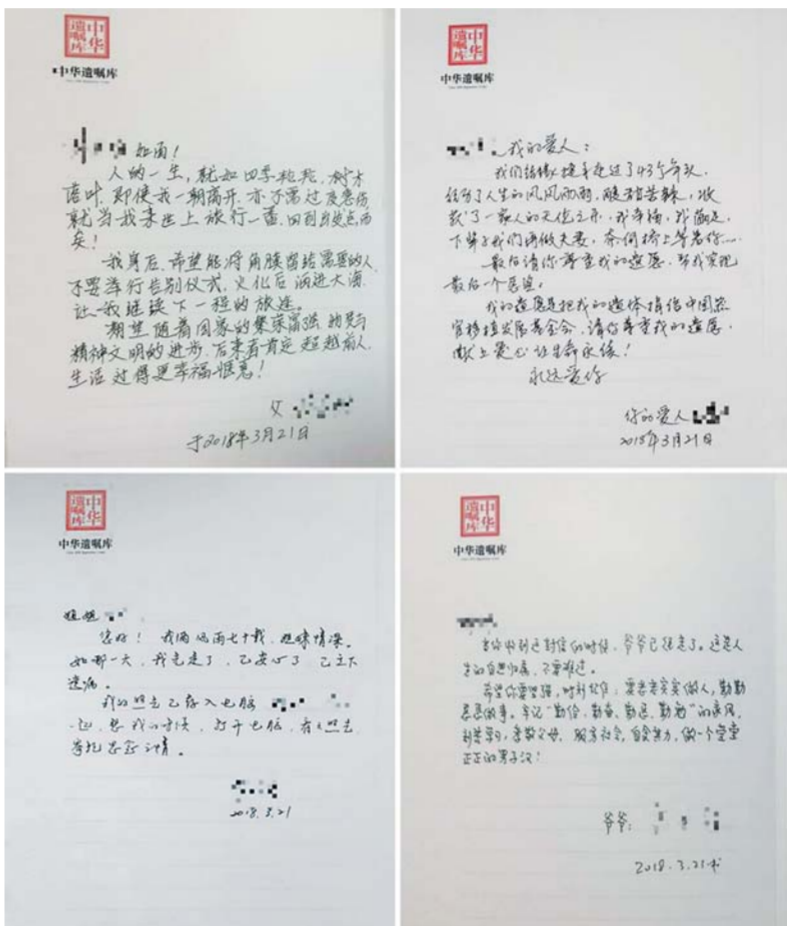 中华遗嘱库
中华遗嘱库
如面！
人的一生，就如四季轮轮，树木
落叶，即使我一朝离开，亦不需过度悲伤
就当我来世上旅行一番，回到出发点而
矣！
我身后，希望能将角膜留给需要的人
不要举行告别仪式，火化后洒进大海
让我继续下一程的旅途。
期望随着国家的繁荣富强
精神文明的进步，后来者肯定超越前人，
生活过得更幸福惬意！
父
于2018年3月21日
中华遗嘱库
中华遗嘱库
我的爱人：
我们结缘携手走过了43个年头，
经历了人生的风风雨雨，酸甜苦辣，收
获了一家人的天伦之乐，我幸福，我满足，
下辈子我们再做夫妻，奈何桥上等着你……
最后请你尊重我的遗愿，帮我实现
最后一个愿望。
我的遗愿是把我的遗体捐给中国器
官移植发展基金会，请你尊重我的遗愿，
献上爱心让生命永续！
永远爱你
你的爱人
2018年3月21日
中华遗嘱库
中华遗嘱库
姐姐
您好！我俩风雨七十载，姐妹情深。
如哪一天，我先走了，
我的照片已存入电脑
想我的时候，打开电脑，看看照片
2018.3.21
中华遗嘱库
中华遗嘱库
当你收到这封信的时候，爷爷已经走了。这是人
生的自然归宿，不要难过。
希望你要坚强，老老实实做人，勤勤
恳恳做事。牢记“勤俭、勤奋、
孝敬父母，服务社会，自食其力，做一个堂堂
正正的男子汉！
爷爷：
2018.3.21书